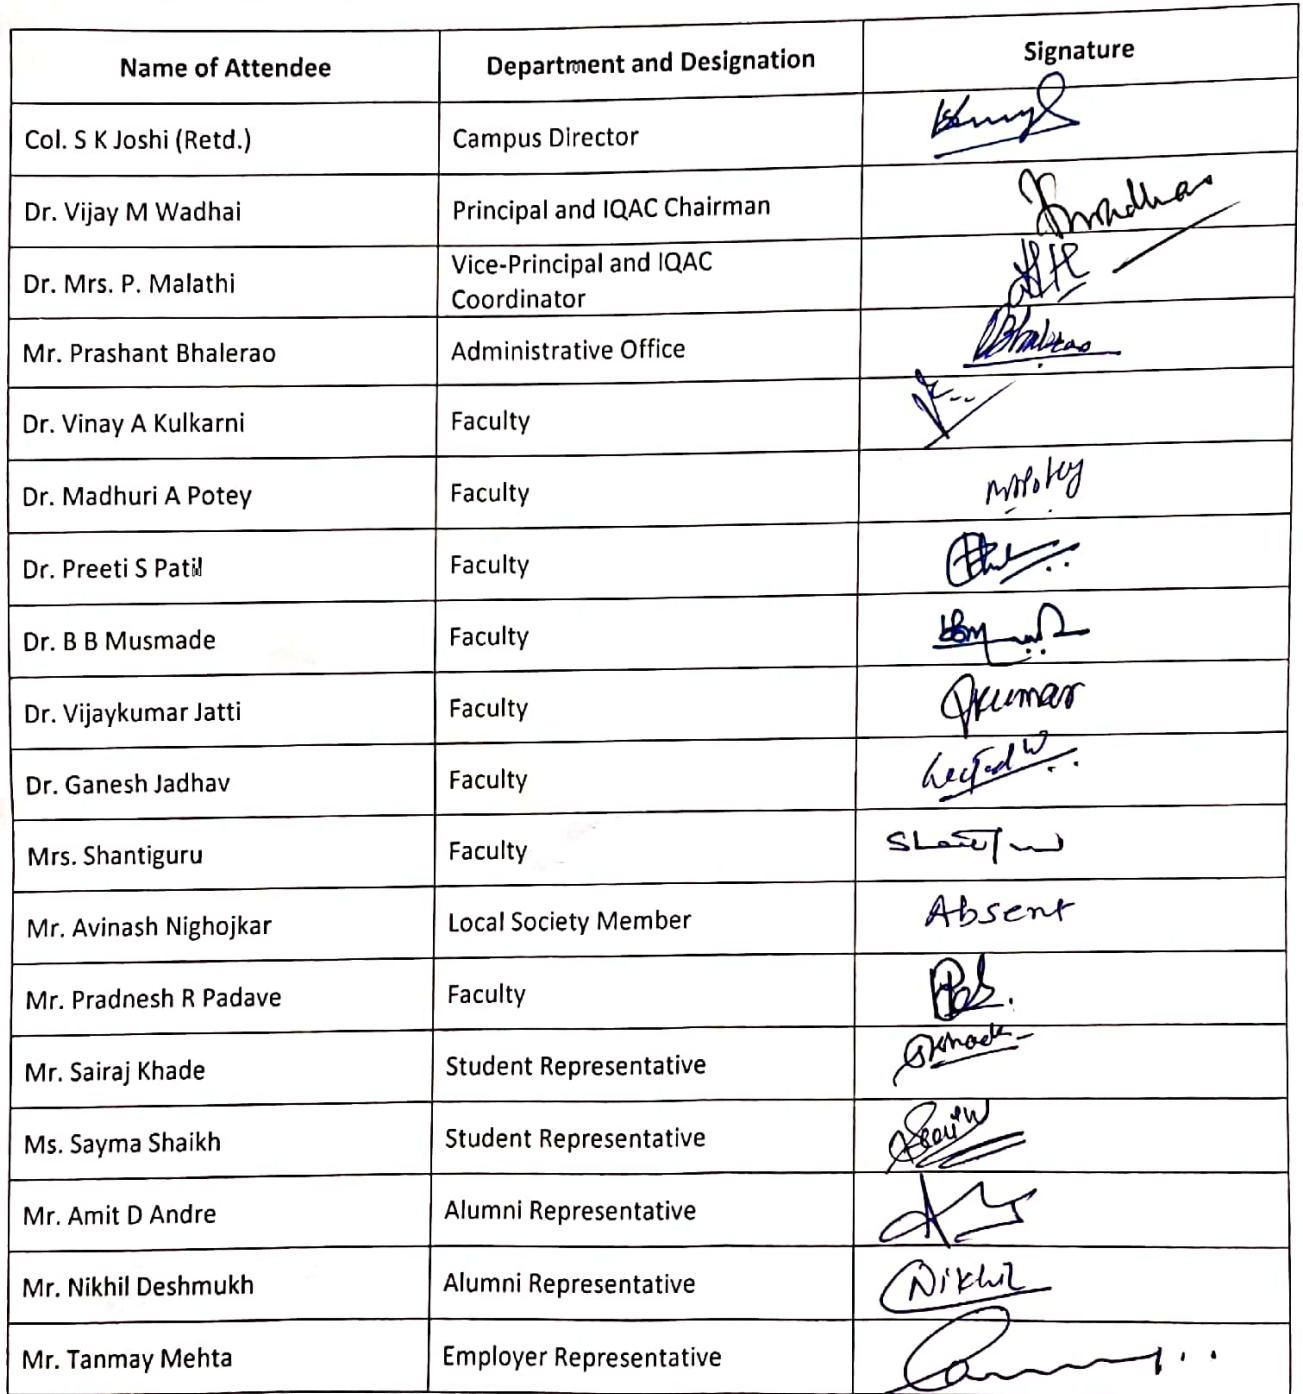 Name of Attendee Department and Designation Signature
Col. S K Joshi (Retd.) Campus Director
Dr. Vijay M Wadhai Principal and IQAC Chairman
Dr. Mrs. P. Malathi Vice-Principal and IQAC
Coordinator
Mr. Prashant Bhalerao Administrative Office
Dr. Vinay A Kulkarni Faculty
Dr. Madhuri A Potey Faculty
Dr. Preeti S Patil Faculty
Dr. B B Musmade Faculty
Dr. Vijaykumar Jatti Faculty
Dr. Ganesh Jadhav Faculty
Mrs. Shantiguru Faculty
Mr. Avinash Nighojkar Local Society Member Absent
Mr. Pradnesh R Padave Faculty
Mr. Sairaj Khade Student Representative
Ms. Sayma Shaikh Student Representative
Mr. Amit D Andre Alumni Representative
Mr. Nikhil Deshmukh Alumni Representative Nikhil
Mr. Tanmay Mehta Employer Representative